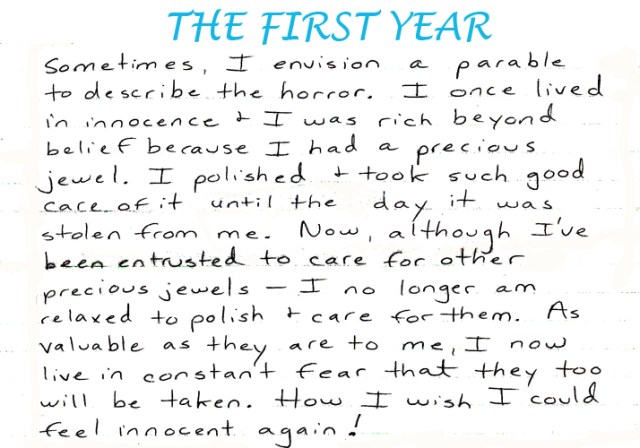 THE FIRST YEAR
Sometimes, I envision a parable
to describe the horror. I once lived
in innocence & I was rich beyond
belief because I had a precious
jewel. I polished & took such good
care of it until the day it was
stolen from me. Now, although I've
been entrusted to care for other
precious jewels – I no longer am
relaxed to polish & care for them. As
valuable as they are to me, I now
live in constant fear that they too
will be taken. How I wish I could
feel innocent again!